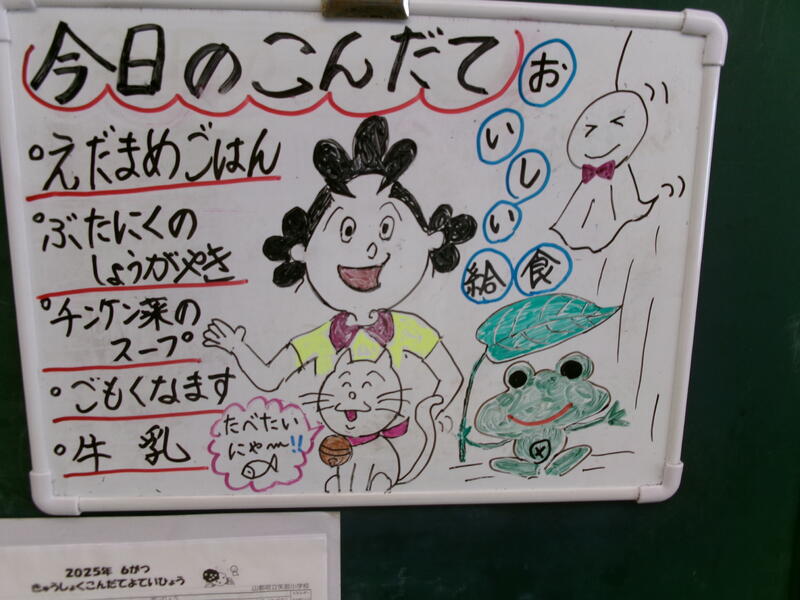 今日のこんだて
おいしい給食
えだまめごはん
ぶたにくの
しょうがやき
チンケン菜の
スープ
ごもくなます
牛乳
たべたい
にゃ〜!!
2025年 6がつ
きゅうしょくこんだてよていひょう